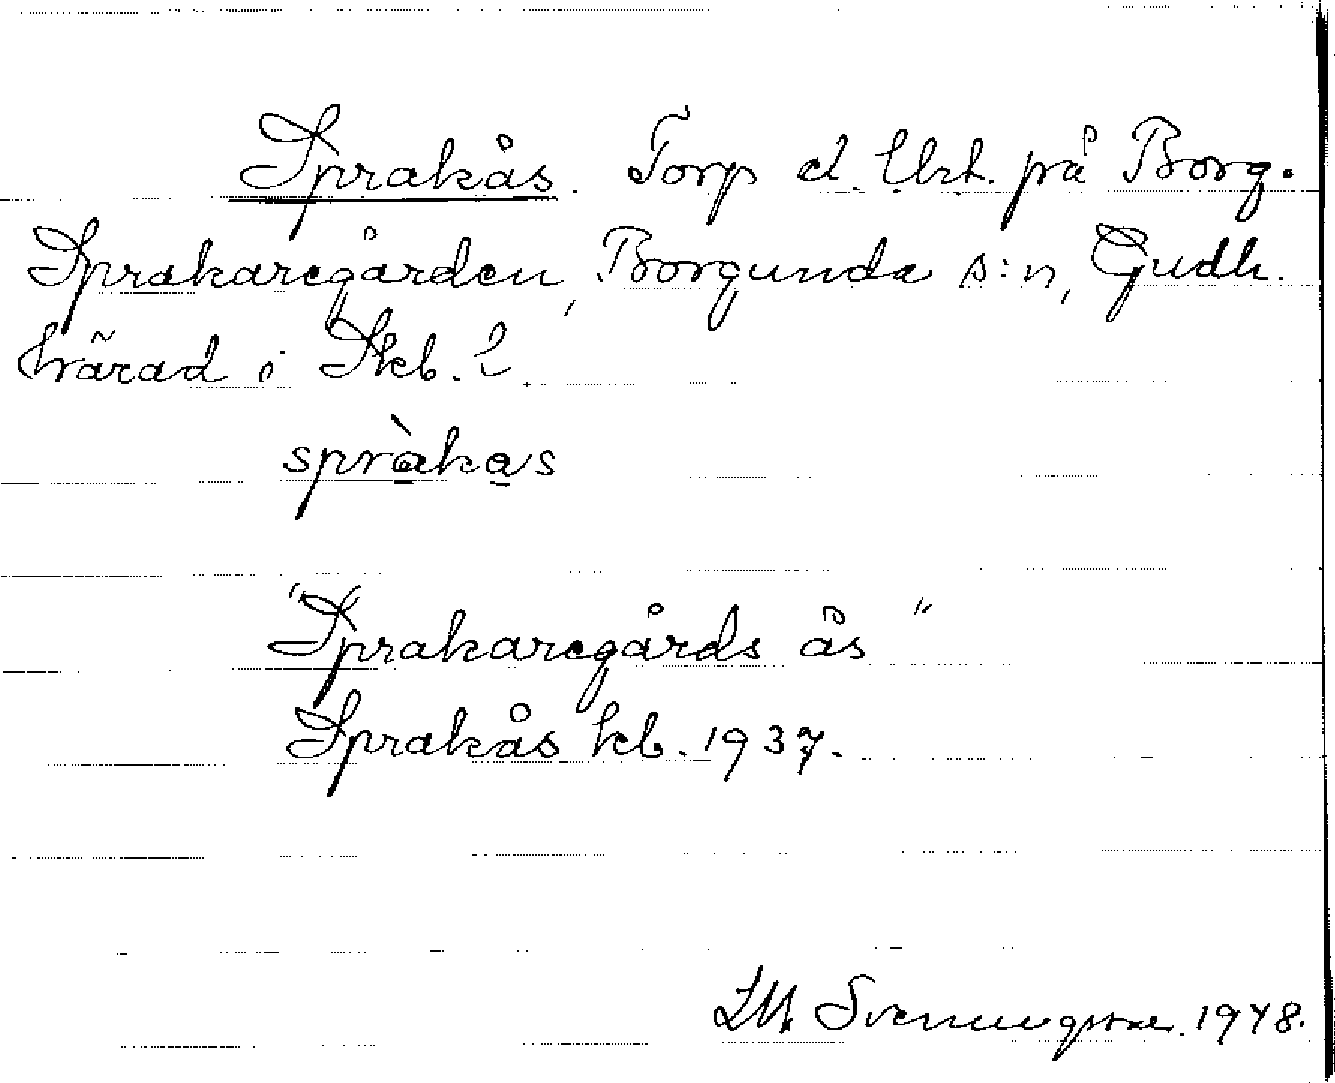 Sprakås. Torp el. lht. på Borg.
Sprakaregården, Borgunda s:n, Gudh.
härad i Skb. l.
språkas
"Sprakaregårds ås"
Sprakås kb. 1937.
Svenungsson. 1948.